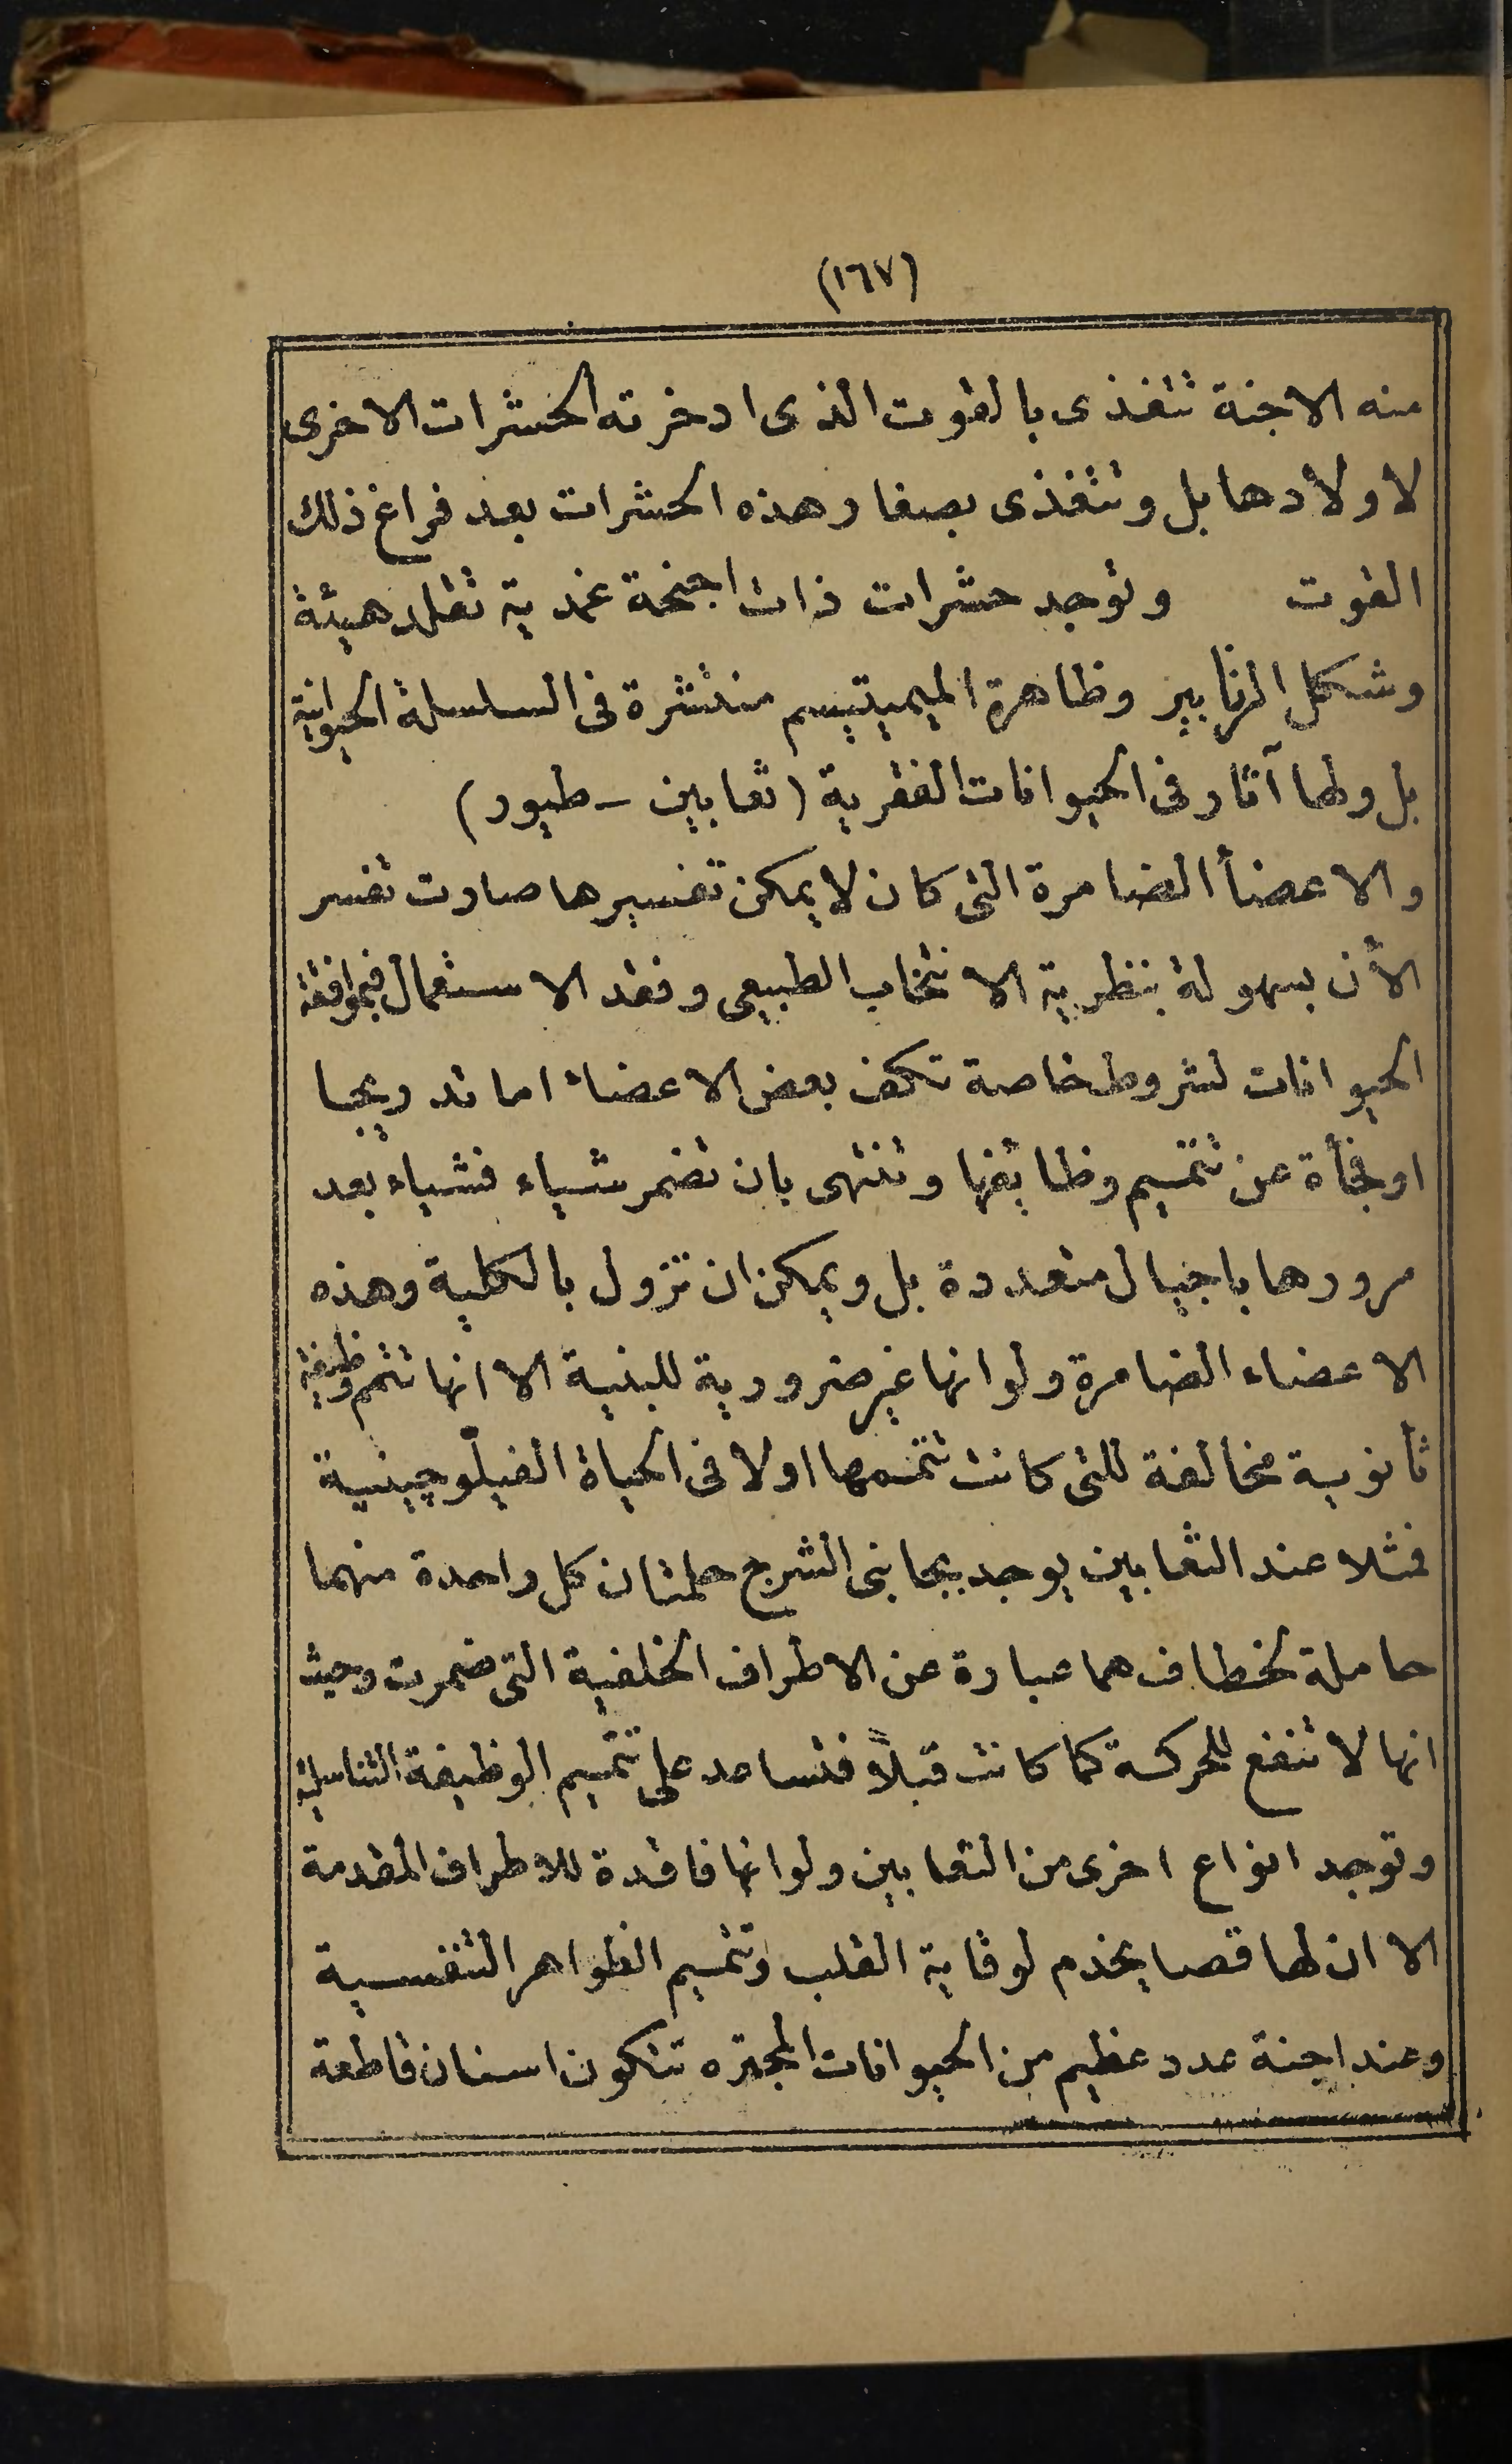 (١٦٧)
منه الاجنة تتغذى بالقوت الذى ادخرته الحشرات الاخرى
لاولادها بل وتتغذى بصغار هذه الحشرات بعد فراغ ذلك
القوت وتوجد حشرات ذات اجنحة غمدية تقلد هيئة
وشكل الزنابير وظاهرة الميميتيسم منتشرة فى السلسلة الحيوانية
بل ولها آثار فى الحيوانات الفقرية (ثعابين - طيور)
والاعضأ الضامرة التى كان لا يمكن تفسيرها صارت تفسر
الأن بسهولة بنظرية الانتخاب الطبيعى وفقد الاستعمال فبموافقة
الحيوانات لشروط خاصة تكف بعض الاعضاء اما تدريجيا
او فجأة عن تتميم وظائفها وتنتهى بان تضمر شياء فشياء بعد
مرورها باجيال متعددة بل ويمكن ان تزول بالكلية وهذه
الاعضاء الضامرة ولو انها غير ضرورية للبنية الا انها تتمم وظيفة
ثانوية مخالفة للتى كانت تتممها اولا فى الحياة الفيلوچينية
فمثلا عند الثعابين يوجد بجانبى الشرج حلمتان كل واحدة منهما
حاملة لخطاف هما عبارة عن الاطراف الخلفية التى ضمرت وحيث
انها لا تنفع للحركة كما كانت قبلاً فتساعد على تتميم الوظيفة التناسلية
وتوجد انواع اخرى من الثعابين ولو انها فاقدة للاطراف المقدمة
الا ان لها قصا يخدم لوقاية القلب وتتميم الظواهر التنفسية
وعند اجنة عدد عظيم من الحيوانات المجتره تتكون اسنان قاطعة